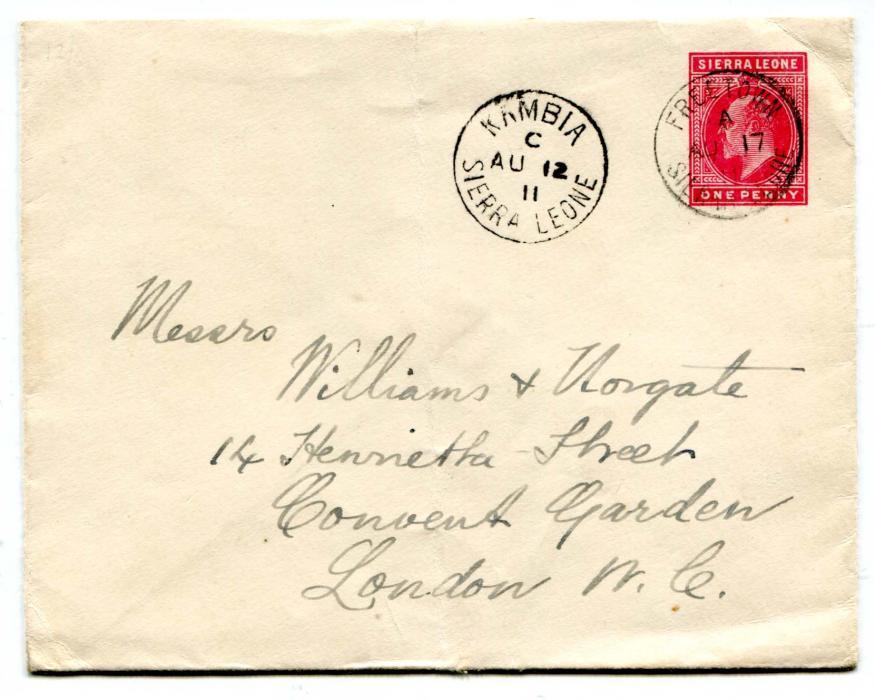 SIERRA LEONE
FREETOWN
A
AU 17
SIERRA LEONE
ONE PENNY
KAMBIA
C
AU 12
11
SIERRA LEONE
Messrs
Williams & Norgate
14 Henrietta Street
Convent Garden
London W. C.